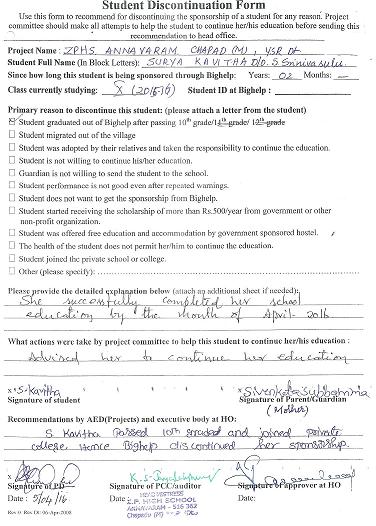 Student Discontinuation Form
Use this form to recommend for discontinuing the sponsorship of a student for any reason. Project
committee should make all attempts to help the student to continue her/his education before sending this
recommendation to head office.
Project Name : ZPHS ANNAVARAM CHAPAD (M), YSR Dt
Student Full Name (In Block Letters): SURYA KAVITHA D/O. S Srinivasulu.
Since how long this student is being sponsored through Bighelp: Years: 02 Months: —
Class currently studying: X (2015-16) Student ID at Bighelp :
Primary reason to discontinue this student: (please attach a letter from the student)
Student graduated out of Bighelp after passing 10th grade/11th grade/ 12th grade
Student migrated out of the village
Student was adopted by their relatives and taken the responsibility to continue the education.
Student is not willing to continue his/her education.
Guardian is not willing to send the student to the school.
Student performance is not good even after repeated warnings.
Student does not want to get the sponsorship from Bighelp.
Student started receiving the scholarship of more than Rs.500/year from government or other
non-profit organization.
Student was offered free education and accommodation by government sponsored hostel.
The health of the student does not permit her/him to continue the education.
Student joined the private school or college.
Other (please specify):
Please provide the detailed explanation below (attach an additional sheet if needed):
She successfully completed her school
education by the month of April 2016
What actions were take by project committee to help this student to continue her/his education :
Advised her to continue her education
x S. Kavitha
Signature of student
x S. Venkata Subbamma
Signature of Parent/Guardian
(Mother)
Recommendations by AED(Projects) and executive body at HO:
S Kavitha Passed 10th graded and joined private
college. Hence Bighelp discontinued her sponsorship.
Signature of PC
Signature of PCC/auditor
Signature of approver at HO
Date : 5/04/16
Date :
HEADMISTRESS
Z.P. HIGH SCHOOL
ANNAVARAM - 516 362
Date:
Rev 0: Rev Dt: 06-Apr-2008